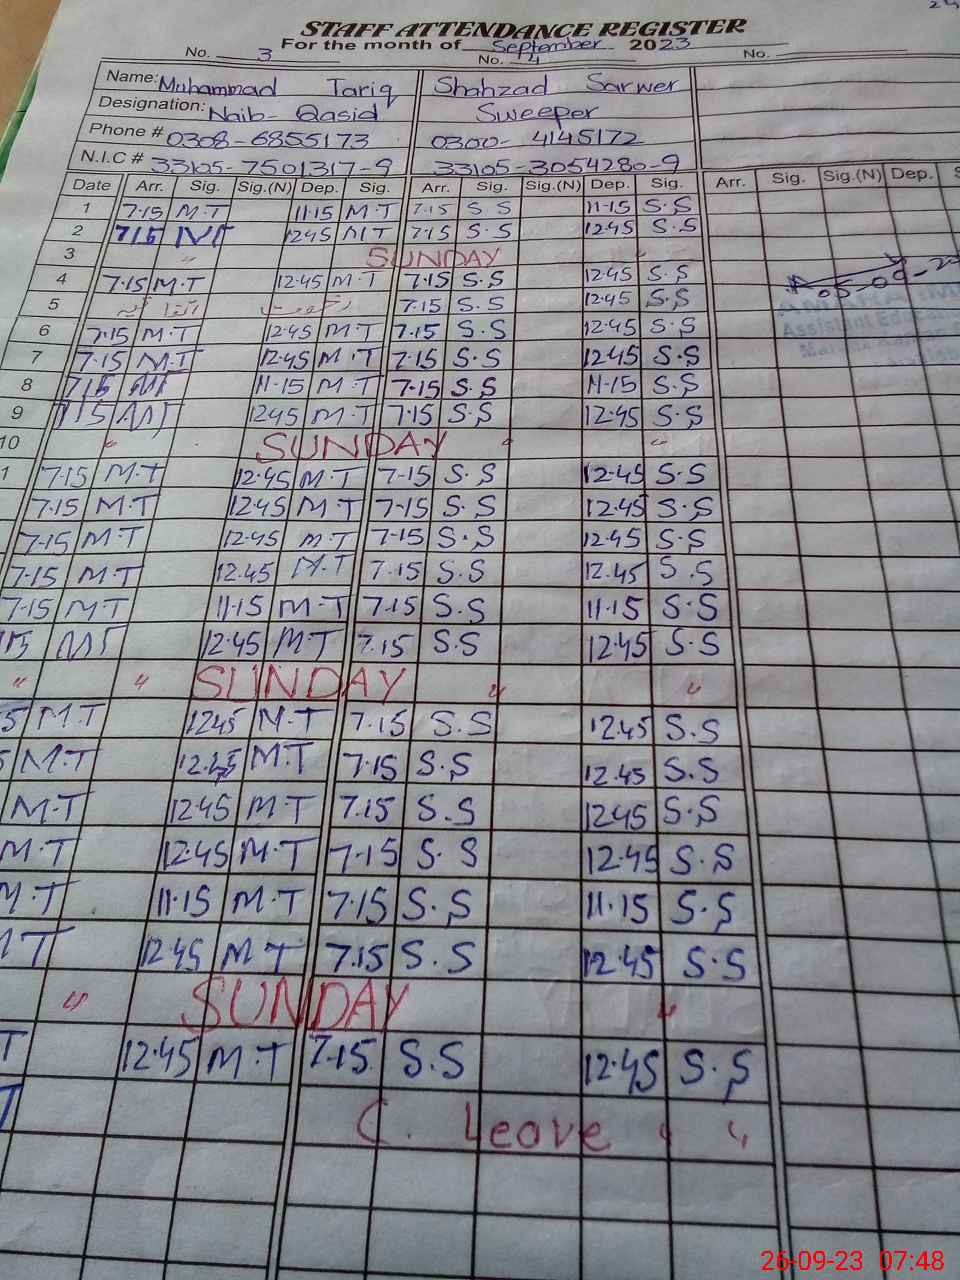 STAFF ATTENDANCE REGISTER
For the month of September 2023
No. 3 No. 4 No.
Name: Muhammad Tariq Shahzad Sarwer
Designation: Naib- Qasid Sweeper
Phone # 0308-6855173 0300- 4145172
N.I.C # 33105-7501317-9 33105-3054280-9
Date Arr. Sig. Sig.(N) Dep. Sig. Arr. Sig. Sig.(N) Dep. Sig. Arr. Sig. Sig.(N) Dep.
1 7.15 M.T 11.15 M.T 7.15 S S 11.15 S.S
2 7.15 MT 12.45 MT 7.15 S.S 12.45 S.S
3 " SUNDAY "
4 7.15 M.T 12.45 M.T 7.15 S.S 12.45 S.S
5 رخصت 7.15 S.S 12.45 S.S
6 7.15 M.T 12.45 M.T 7.15 S.S 12.45 S.S
7 7.15 M.T 12.45 M.T 7.15 S.S 12.45 S.S
8 7.15 MT 11.15 M.T 7.15 S.S 11.15 S.S
9 7.15 MT 12.45 M.T 7.15 S.S 12.45 S.S
10 " SUNDAY " "
1 7.15 M.T 12.45 M.T 7.15 S.S 12.45 S.S
7.15 M.T 12.45 M.T 7.15 S.S 12.45 S.S
7.15 M.T 12.45 M.T 7.15 S.S 12.45 S.S
7.15 M.T 12.45 M.T 7.15 S.S 12.45 S.S
7.15 M.T 11.15 M.T 7.15 S.S 11.15 S.S
15 MT 12.45 M.T 7.15 S.S 12.45 S.S
" " SUNDAY " "
5 M.T 12.45 M.T 7.15 S.S 12.45 S.S
5 M.T 12.45 M.T 7.15 S.S 12.45 S.S
M.T 12.45 M.T 7.15 S.S 12.45 S.S
M.T 12.45 M.T 7.15 S.S 12.45 S.S
M.T 11.15 M.T 7.15 S.S 11.15 S.S
MT 12.45 M.T 7.15 S.S 12.45 S.S
" SUNDAY "
T 12.45 M.T 7.15 S.S 12.45 S.S
T C. Leave " "
26-09-23 07:48